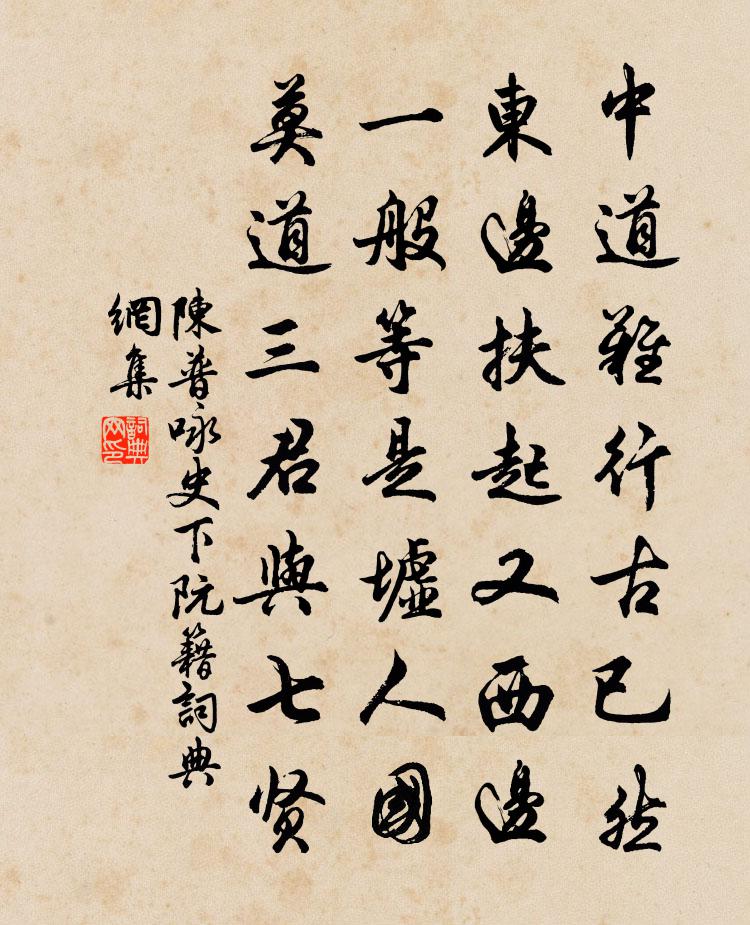 中道難行古已然
東邊扶起又西邊
一般等是墟人國
莫道三君與七贤
陳普咏史下阮籍詞典
網集
詞典
网印